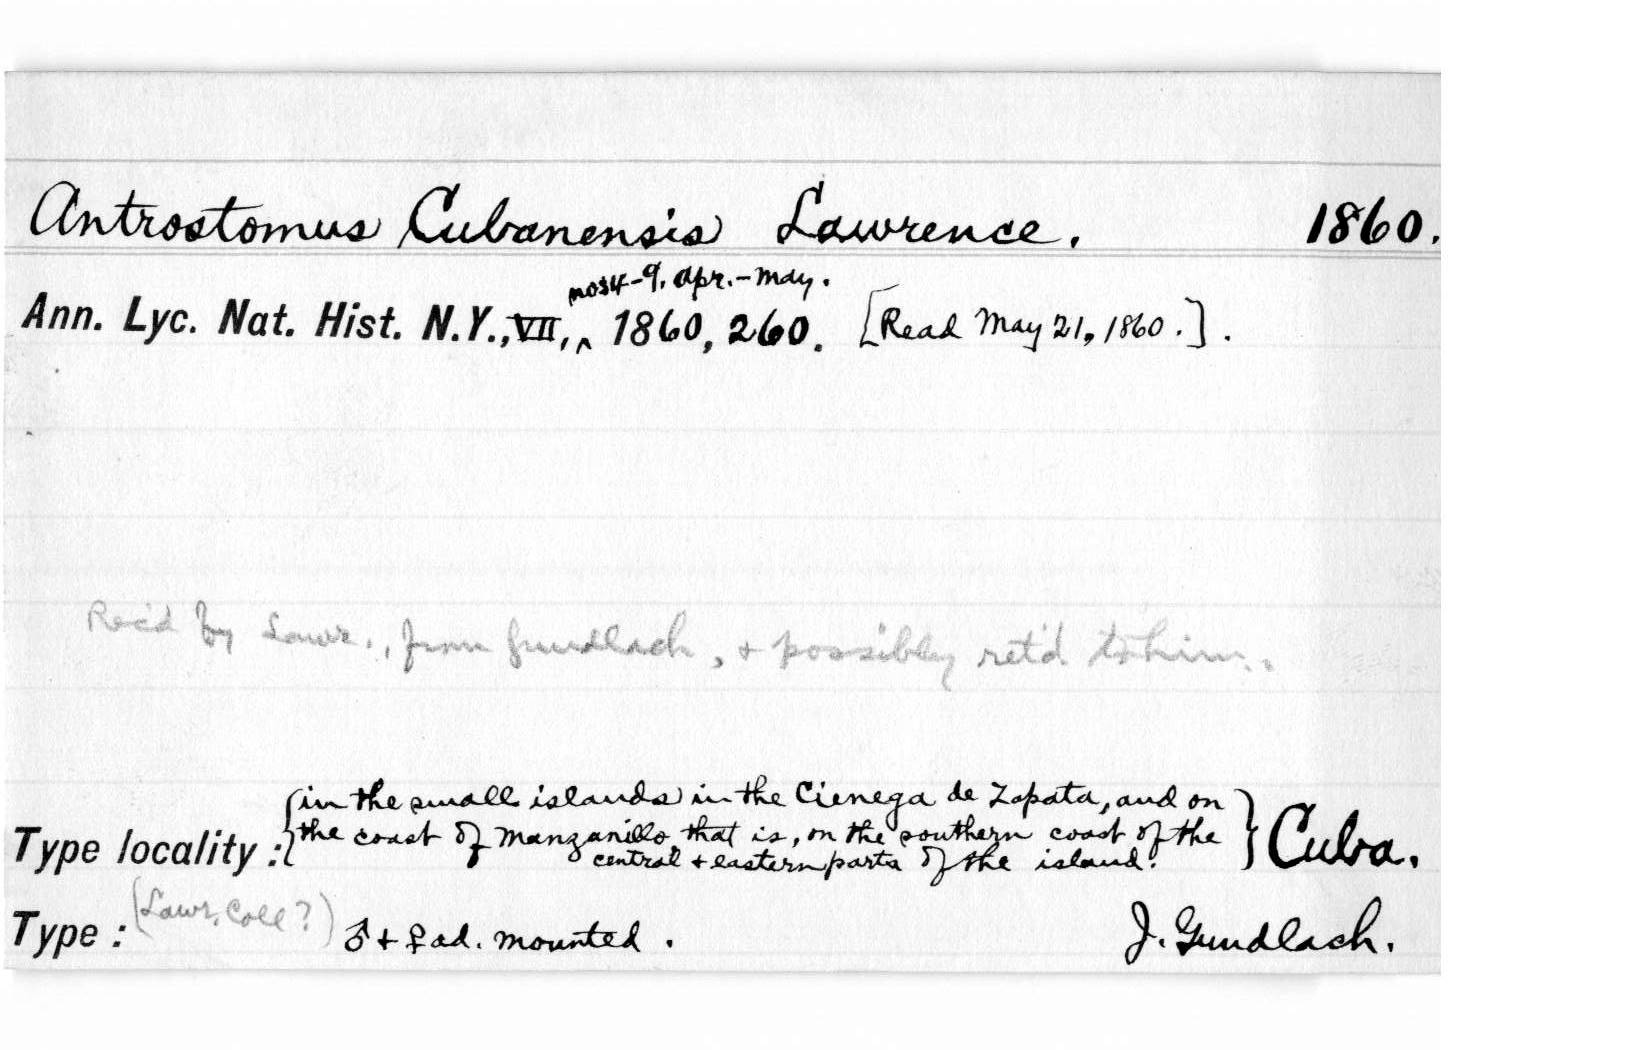 Antrostomus Cubanensis Lawrence. 1860.
nos 4-9. Apr.-May.
Ann. Lyc. Nat. Hist. N.Y., VII, ^ 1860, 260. [Read May 21, 1860.].
Rec'd by Lawr., from Gundlach, + possibly ret'd to him..
{in the small islands in the Cienega de Zapata, and on
the coast of Manzanillo, that is, on the southern coast of the
Type locality: central + eastern parts of the island.} Cuba.
(Lawr. Coll?)
Type: ♂ + ♀ ad. mounted. J. Gundlach.